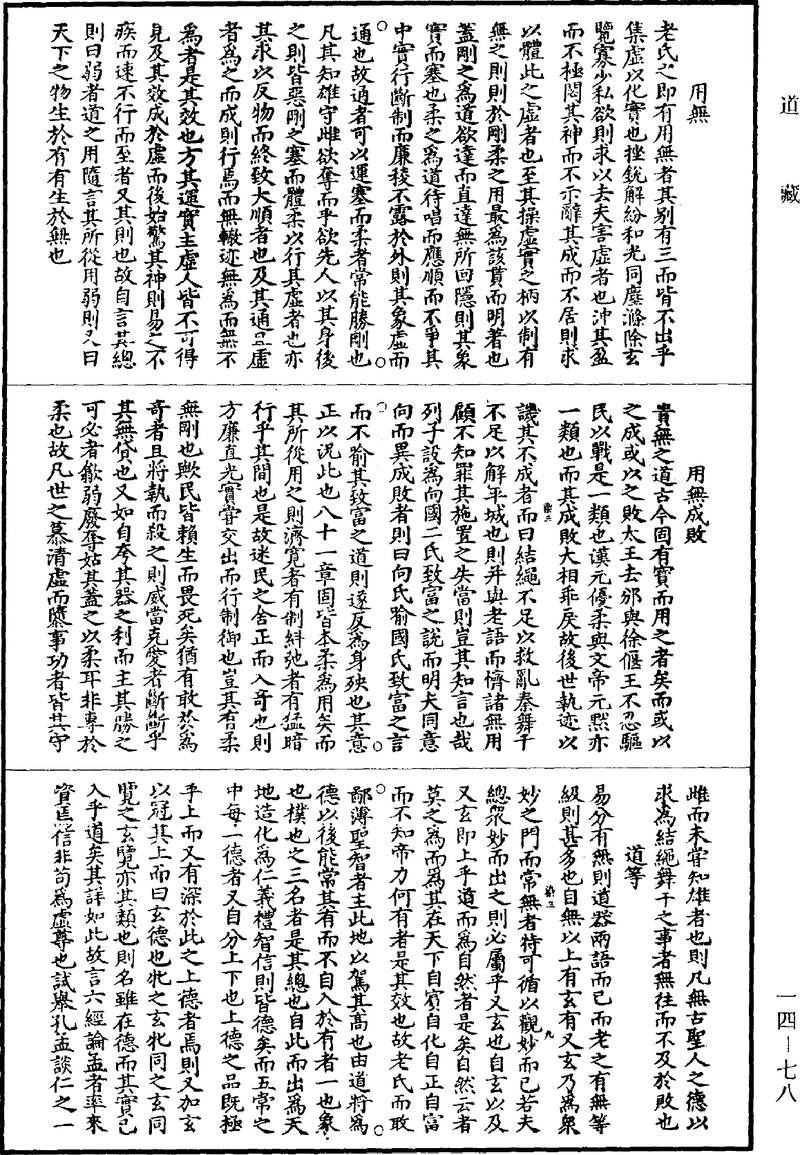 道藏
用無
老氏之即有用無者其别有三而皆不出乎
集虛以化實也挫銳解紛和光同塵滌除玄
覽寡少私欲則求以去夫害虛者也沖其盈
而不極悶其神而不示辭其成而不居則求
以體此之虛者也至其操虛實之柄以制有
無之則則於剛柔之用最為該貫而明著也
蓋剛之為道欲達而直達無所回隱則其象
實而塞也柔之為道待唱而應順而不爭其
中實行斷制而廉稜不露於外則其象虛而
通也故通者可以運塞而柔者常能勝剛也
凡其知雄守雌欲奪而予欲先人以其身後
之則皆惡剛之塞而體柔以行其虛者也亦
其求以反物而終致大順者也及其通且虛
者為之而成則行焉而無轍迹無為而無不
為者是其效也方其運實主虛人皆不可得
見及其效成於虛而後始驚其神則易之不
疾而速不行而至者又其則也故自言其總
則曰弱者道之用隨言其所從用弱則又曰
天下之物生於有有生於無也
用無成敗
貴無之道古今固有寶而用之者矣而或以
之成或以之敗太王去邠與徐偃王不忍驅
民以戰是一類也漢元優柔與文帝元默亦
一類也而其成敗大相乖戾故後世執迹以
譏其不成者而曰結繩不足以救亂秦舞干
不足以解平城也則并與老語而儕諸無用
顧不知罪其施置之失當則豈其知言也哉
列子設為向國二氏致富之說而明夫同意
向而異成敗者則曰向氏喻國氏致富之言
而不喻其致富之道則遂反為身殃也其意
正以況此也八十一章固皆本柔為用矣而
其所從用之則濟寬者有制糾弛者有猛暗
行乎其間也是故迷民之舍正而入奇也則
方廉直光實嘗交出而行制御也豈其有柔
無剛也歟民皆賴生而畏死矣猶有敢於為
奇者且將執而殺之則威當克愛者斷斷乎
其無貸也又如自夸其器之利而主其勝之
可必者歙弱廢奪姑其蓋之以柔耳非專於
柔也故凡世之慕清虛而隳事功者皆其守
雌而未嘗知雄者也則凡無古聖人之德以
求為結繩舞干之事者無往而不及於敗也
道等
易分有無則道器兩語而已而老之有無等
級則甚多也自無以上有玄有又玄乃為眾
妙之門而常無者特可循以觀妙而已若夫
總眾妙而出之則必屬乎又玄也自玄以及
又玄即上乎道而為自然者是矣自然云者
莫之為而為其在天下自賓自化自正自富
而不知帝力何有者是其效也故老氏而敢
鄙薄聖智者主此地以駕其高也由道將為
德以後能常其有而不自入於有者一也象
也樸也之三名者是其總也自此而出為天
地造化為仁義禮智信則皆德矣而五常之
中每一德者又自分上下也上德之品既極
乎上而又有深於此之上德者焉則又加玄
以冠其上而曰玄德也牝之玄牝同之玄同
覽之玄覽亦其類也則名雖在德而其實已
入乎道矣其詳如此故言六經論孟者率來
資匡信非苟為虛尊也試舉孔孟談仁之一
一四—七八